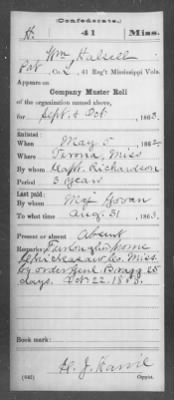 (Confederate.)
H. 41 Miss.
Wm Halsell
Pvt, Co. L, 41 Reg't Mississippi Vols.
Appears on
Company Muster Roll
of the organization named above,
for Sept & Oct, 1863.
Enlisted:
When May 5, 1862.
Where Verona, Miss
By whom Capt. Richardson
Period 3 years
Last paid:
By whom Maj Govan
To what time Aug. 31, 1863.
Present or absent Absent
Remarks: Furloughed home
Chickasaw Co. Miss.
by order Genl. Bragg 25
days. Oct. 22. 1863.
Book mark:
(642) Copyist.